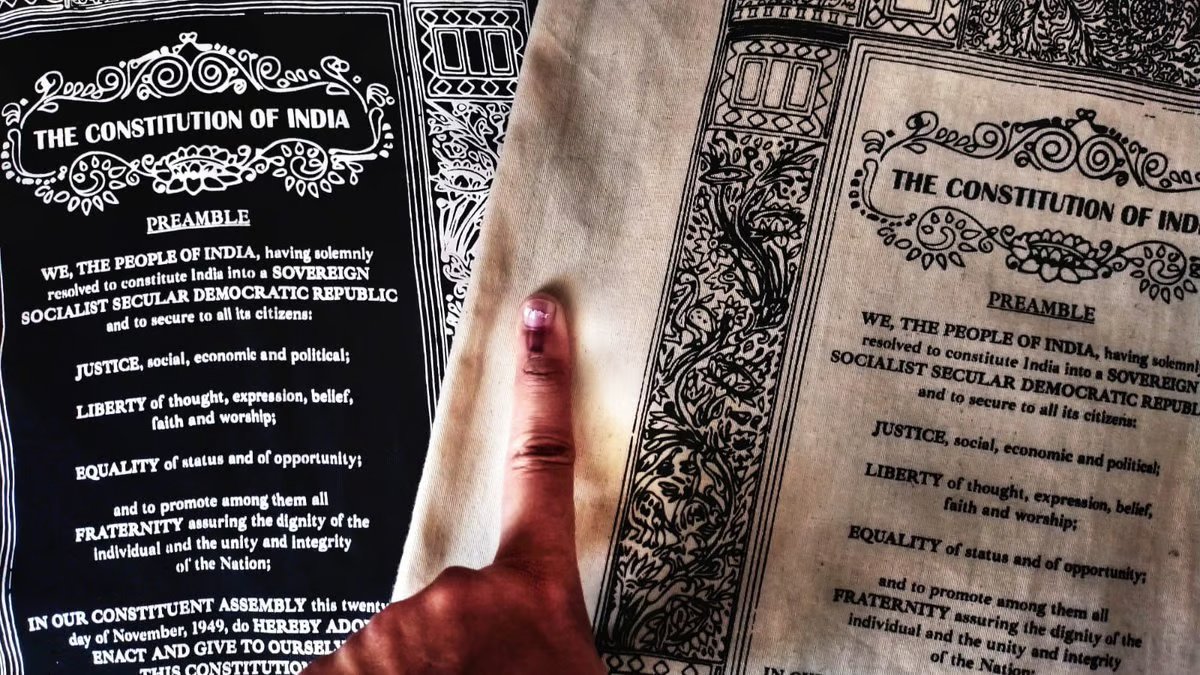 THE CONSTITUTION OF INDIA
PREAMBLE
WE, THE PEOPLE OF INDIA, having solemnly
resolved to constitute India into a SOVEREIGN
SOCIALIST SECULAR DEMOCRATIC REPUBLIC
and to secure to all its citizens:
JUSTICE, social, economic and political;
LIBERTY of thought, expression, belief,
faith and worship;
EQUALITY of status and of opportunity;
and to promote among them all
FRATERNITY assuring the dignity of the
individual and the unity and integrity
of the Nation;
IN OUR CONSTITUENT ASSEMBLY this twenty
day of November, 1949, do HEREBY ADO
ENACT AND GIVE TO OURSEL
THIS CONSTITUTION
THE CONSTITUTION OF IND
PREAMBLE
WE, THE PEOPLE OF INDIA, having solemnl
resolved to constitute India into a SOVEREIGN
SOCIALIST SECULAR DEMOCRATIC REPUB
and to secure to all its citizens:
JUSTICE, social, economic and political;
LIBERTY of thought, expression, belief,
faith and worship;
EQUALITY of status and of opportunity;
and to promote among them all
FRATERNITY assuring the dignity of the
individual and the unity and integrity
of the Nation;
IN OUR